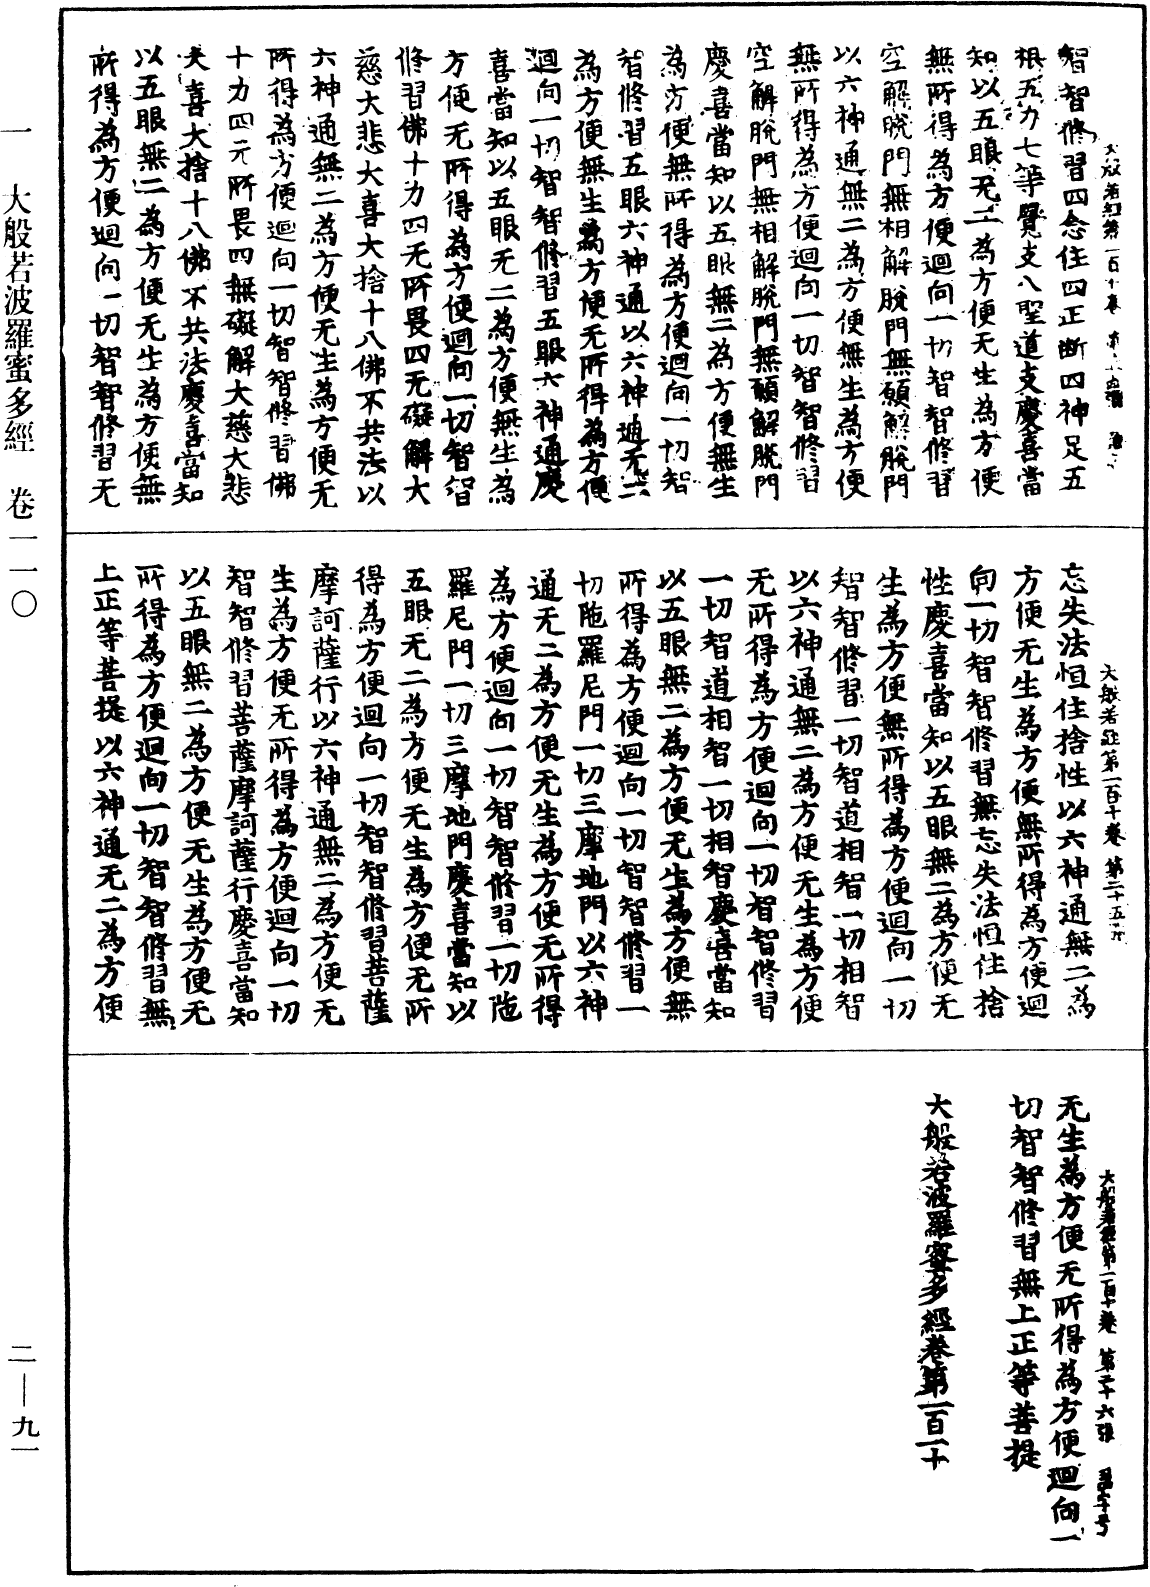 智智修習四念住四正断四神足五
根五力七等覺支八聖道支慶喜當
知以五眼无二為方便无生為方便
無所得為方便迴向一切智智修習
空解脫門無相解脫門無願解脫門
以六神通無二為方便無生為方便
無所得為方便迴向一切智智修習
空解脫門無相解脫門無願解脫門
慶喜當知以五眼無二為方便無生
為方便無所得為方便迴向一切智
智修習五眼六神通以六神通无二
為方便無生為方便无所得為方便
迴向一切智智修習五眼六神通慶
喜當知以五眼无二為方便無生為
方便无所得為方便迴向一切智智
修習佛十力四无所畏四无礙解大
慈大悲大喜大捨十八佛不共法以
六神通無二為方便无生為方便无
所得為方便迴向一切智智修習佛
十力四无所畏四無礙解大慈大悲
大喜大捨十八佛不共法慶喜當知
以五眼無二為方便无生為方便無
所得為方便迴向一切智智修習无
大般若經第一百十卷 第二十五
忘失法恒住捨性以六神通無二為
方便无生為方便無所得為方便迴
向一切智智修習無忘失法恒住捨
性慶喜當知以五眼無二為方便无
生為方便無所得為方便迴向一切
智智修習一切智道相智一切相智
以六神通無二為方便无生為方便
无所得為方便迴向一切智智修習
一切智道相智一切相智慶喜當知
以五眼無二為方便无生為方便無
所得為方便迴向一切智智修習一
切陁羅尼門一切三摩地門以六神
通无二為方便无生為方便无所得
為方便迴向一切智智修習一切陁
羅尼門一切三摩地門慶喜當知以
五眼无二為方便无生為方便无所
得為方便迴向一切智智修習菩薩
摩訶薩行以六神通無二為方便无
生為方便无所得為方便迴向一切
智智修習菩薩摩訶薩行慶喜當知
以五眼無二為方便无生為方便无
所得為方便迴向一切智智修習無
上正等菩提以六神通无二為方便
大般若經第一百十卷 第二十六張 字号
无生為方便无所得為方便迴向一
切智智修習無上正等菩提
大般若波羅蜜多經卷第一百一十
一 大般若波羅蜜多經 卷一一〇
二—九一